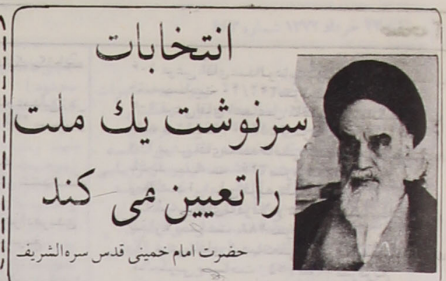 انتخابات
سرنوشت يك ملت
را تعيين مي كند
حضرت امام خمينى قدس سره الشريف